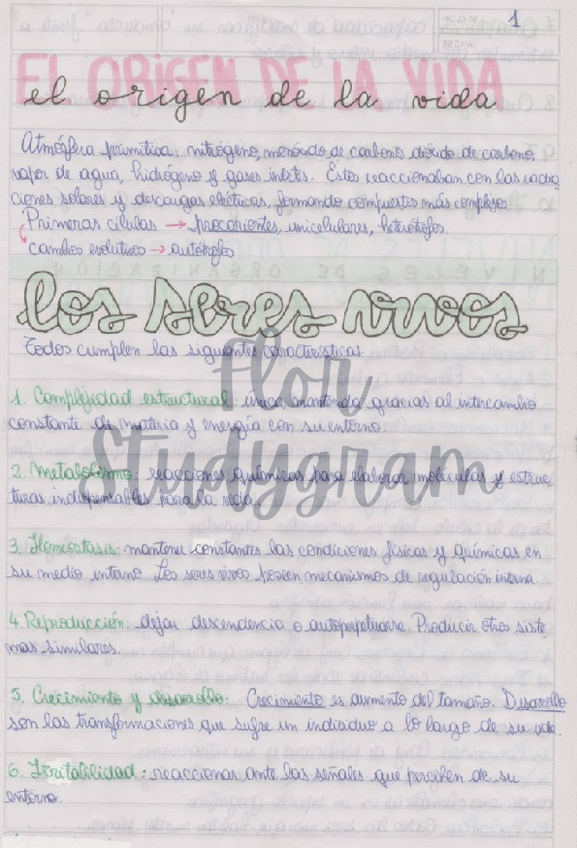 HOJA Nº 1
FECHA
EL ORIGEN DE LA VIDA
el origen de la vida
Atmósfera primitiva: nitrógeno, monóxido de carbono, dióxido de carbono,
vapor de agua, hidrógeno y gases inertes. Estos reaccionaban con las radia
ciones solares y descargas eléctricas, formando compuestos más complejos
Primeras células → procariontes, unicelulares, heterótrofos.
cambios evolutivos → autótrofos
NIVELES DE ORGANIZACIÓN
los seres vivos
Todos cumplen las siguientes características:
1. Complejidad estructural: única, mantenida gracias al intercambio
constante de materia y energía con su entorno.
flor
Studygram
2. Metabolismo: reacciones químicas para elaborar moléculas y estruc
turas indispensables para la vida.
3. Homeostasis: mantener constantes las condiciones físicas y químicas en
su medio interno. Los seres vivos poseen mecanismos de regulación interna.
4. Reproducción: dejar descendencia o autoperpetuarse. Producir otros siste
mas similares.
5. Crecimiento y desarrollo: Crecimiento es aumento del tamaño. Desarrollo
son las transformaciones que sufre un individuo a lo largo de su vida.
6. Irritabilidad: reaccionar ante las señales que perciben de su
entorno.